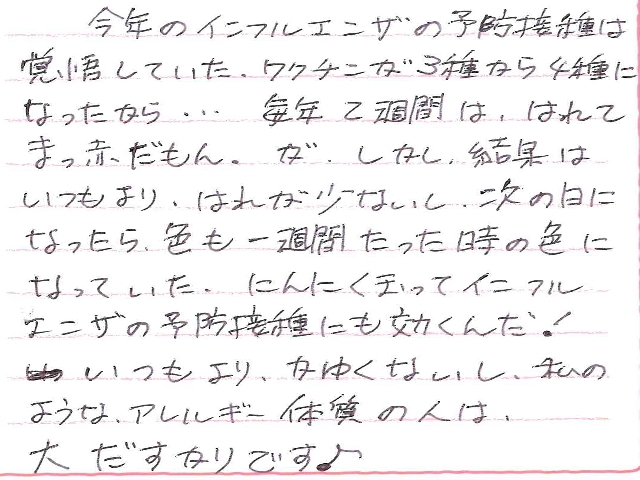 今年のインフルエンザの予防接種は
覚悟していた。ワクチンが3種から4種に
なったから… 毎年2週間は、はれて
まっ赤だもん。が、しかし、結果は
いつもより、はれが少ないし、次の日に
なったら、色も一週間たった時の色に
なっていた。にんにく玉ってインフル
エンザの予防接種にも効くんだ!
いつもより、かゆくないし、私の
ような、アレルギー体質の人は、
大だすかりです♪